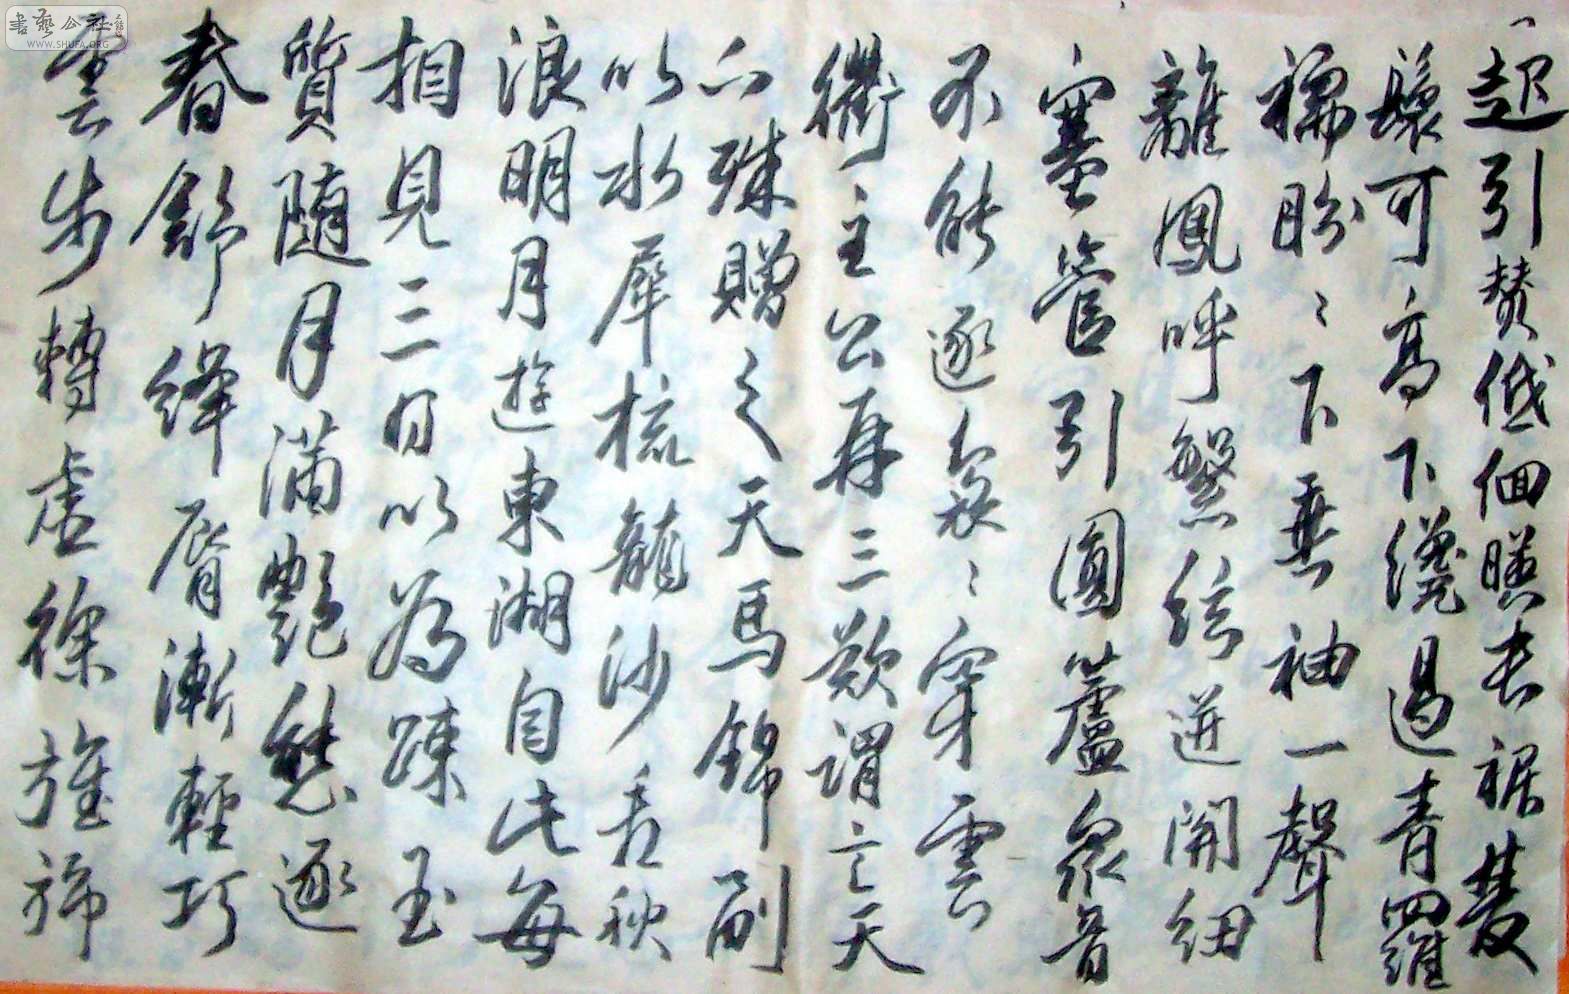 起引賛低佪暎長裾雙
鬟可高下纔過青羅
襦盼〻下垂袖一聲
離鳳呼繁絃迸開紐
塞管引圓蘆衆音
不能逐裊〻穿雲
衢主公再三歎謂言天
下殊贈之天馬錦副
以水犀梳龍沙看秋
浪明月遊東湖自此每
相見三日以為踈玉
質隨月滿艷態逐
春舒絳脣漸輕巧
雲步轉虛徐旌旆
書藝公社
WWW.SHUFA.ORG